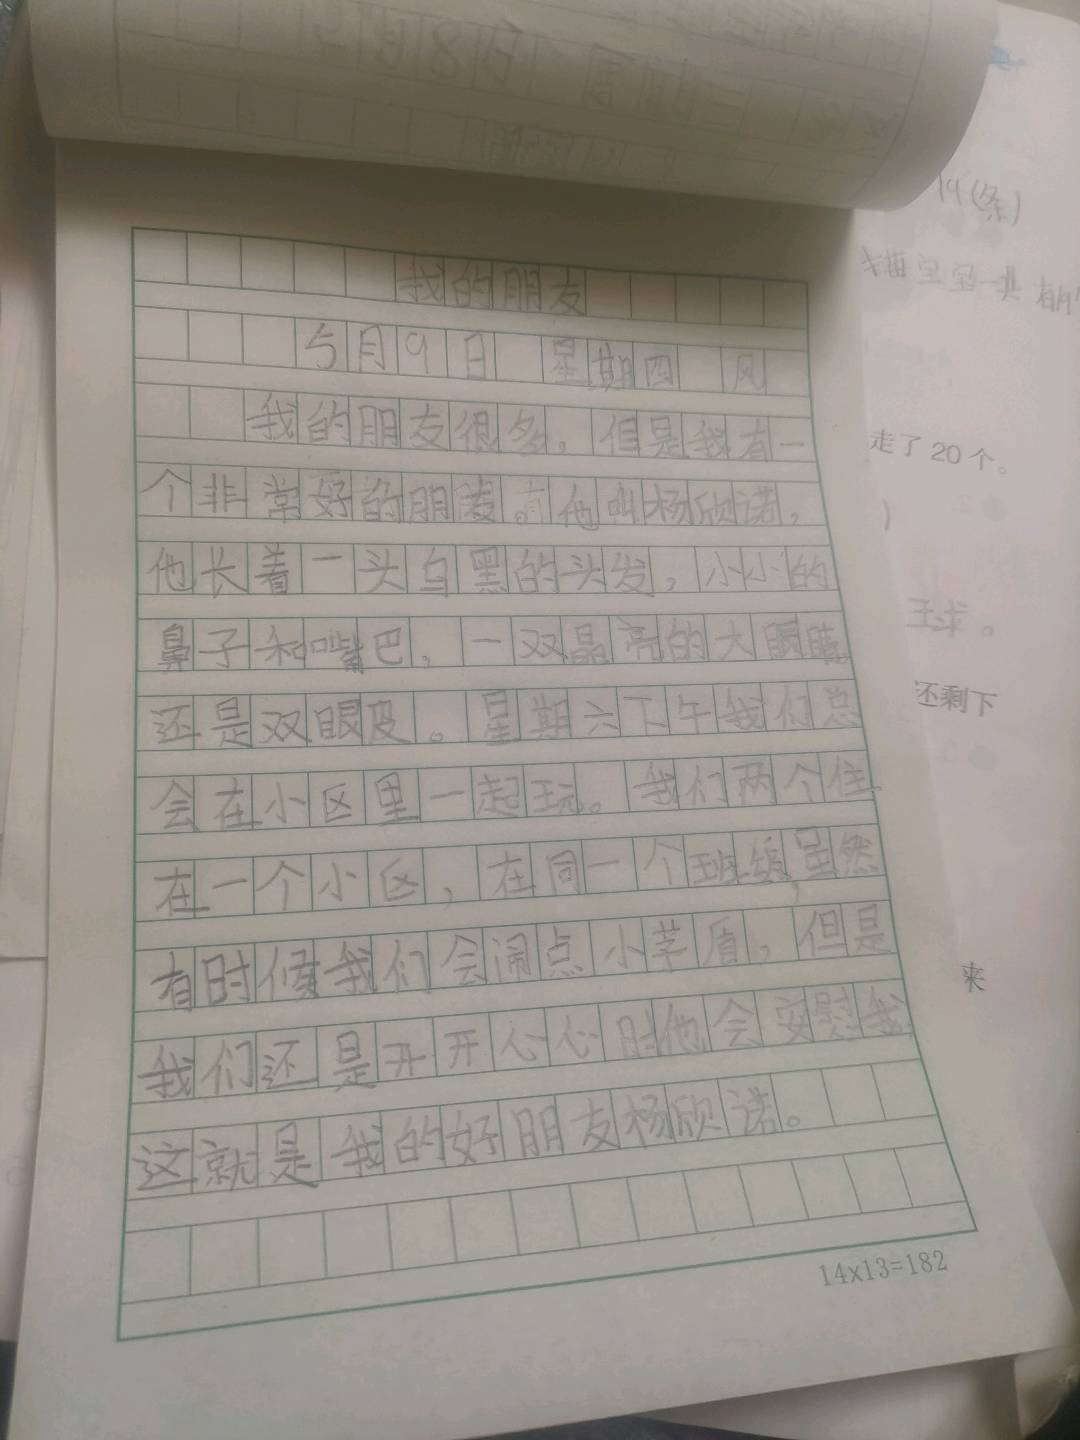 我的朋友
5月9日 星期四 风
我的朋友很多，但是我有一
个非常好的朋友。他叫杨欣诺，
他长着一头乌黑的头发，小小的
鼻子和嘴巴，一双晶亮的大眼睛
还是双眼皮。星期六下午我们总
会在小区里一起玩。我们两个住
在一个小区，在同一个班级，虽然
有时候我们会闹点小茅盾，但是
我们还是开开心心时他会安慰我
这就是我的好朋友杨欣诺。
14x13=182
19(条)
一共有
走了20个。
)
还剩下
来